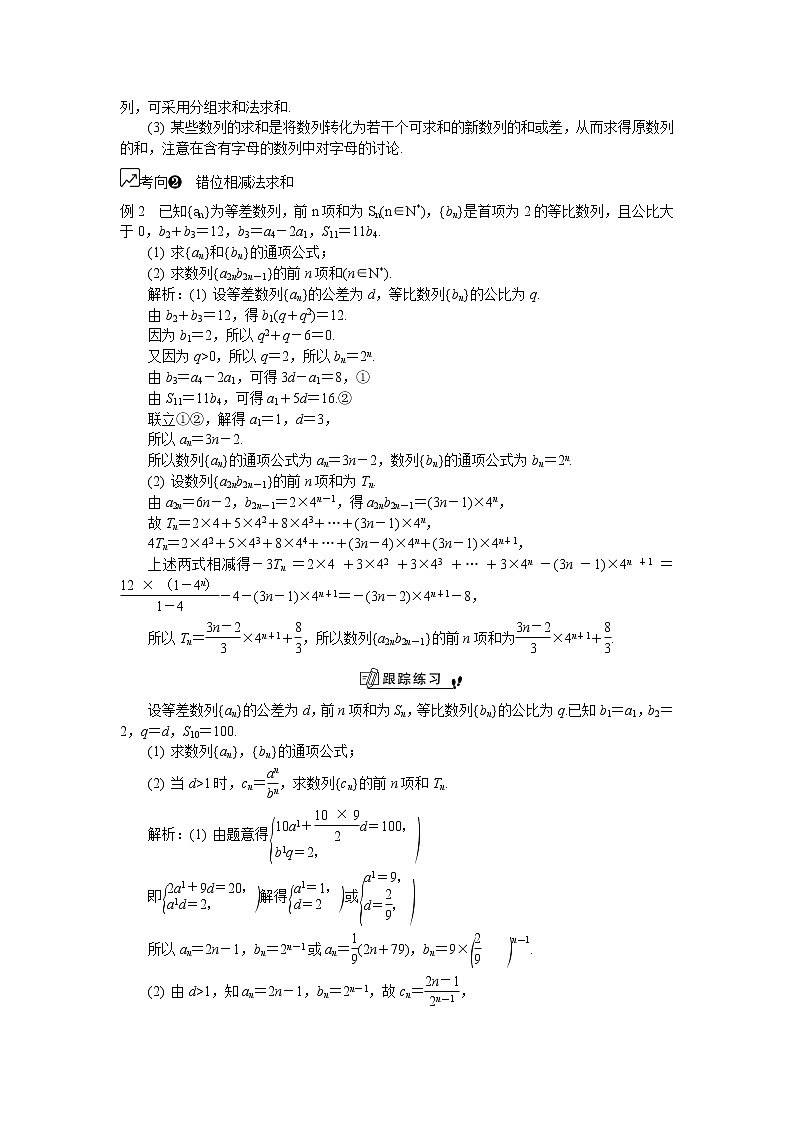 列，可采用分组求和法求和.
(3) 某些数列的求和是将数列转化为若干个可求和的新数列的和或差，从而求得原数列
的和，注意在含有字母的数列中对字母的讨论.
考向❷　错位相减法求和
例 2　已知{aₙ}为等差数列，前 n 项和为 Sₙ(n∈N*)，{bₙ}是首项为 2 的等比数列，且公比大
于 0，b₂＋b₃＝12，b₃＝a₄－2a₁，S₁₁＝11b₄.
(1) 求{aₙ}和{bₙ}的通项公式；
(2) 求数列{a₂ₙb₂ₙ₋₁}的前 n 项和(n∈N*).
解析：(1) 设等差数列{aₙ}的公差为 d，等比数列{bₙ}的公比为 q.
由 b₂＋b₃＝12，得 b₁(q＋q²)＝12.
因为 b₁＝2，所以 q²＋q－6＝0.
又因为 q>0，所以 q＝2，所以 bₙ＝2ⁿ.
由 b₃＝a₄－2a₁，可得 3d－a₁＝8，①
由 S₁₁＝11b₄，可得 a₁＋5d＝16.②
联立①②，解得 a₁＝1，d＝3，
所以 aₙ＝3n－2.
所以数列{aₙ}的通项公式为 aₙ＝3n－2，数列{bₙ}的通项公式为 bₙ＝2ⁿ.
(2) 设数列{a₂ₙb₂ₙ₋₁}的前 n 项和为 Tₙ.
由 a₂ₙ＝6n－2，b₂ₙ₋₁＝2×4ⁿ⁻¹，得 a₂ₙb₂ₙ₋₁＝(3n－1)×4ⁿ，
故 Tₙ＝2×4＋5×4²＋8×4³＋…＋(3n－1)×4ⁿ，
4Tₙ＝2×4²＋5×4³＋8×4⁴＋…＋(3n－4)×4ⁿ＋(3n－1)×4ⁿ⁺¹，
上述两式相减得－3Tₙ＝2×4＋3×4²＋3×4³＋…＋3×4ⁿ－(3n－1)×4ⁿ⁺¹＝
12×（1－4ⁿ）/1－4－4－(3n－1)×4ⁿ⁺¹＝－(3n－2)×4ⁿ⁺¹－8，
所以 Tₙ＝3n－2/3×4ⁿ⁺¹＋8/3，所以数列{a₂ₙb₂ₙ₋₁}的前 n 项和为3n－2/3×4ⁿ⁺¹＋8/3.
跟踪练习
设等差数列{aₙ}的公差为 d，前 n 项和为 Sₙ，等比数列{bₙ}的公比为 q.已知 b₁＝a₁，b₂＝
2，q＝d，S₁₀＝100.
(1) 求数列{aₙ}，{bₙ}的通项公式；
(2) 当 d>1 时，cₙ＝aⁿ/bⁿ，求数列{cₙ}的前 n 项和 Tₙ.
解析：(1) 由题意得(10a¹＋10×9/2d＝100，
b¹q＝2，)
即(2a¹＋9d＝20，a¹d＝2，)解得(a¹＝1，d＝2)或(a¹＝9，d＝2/9，)
所以 aₙ＝2n－1，bₙ＝2ⁿ⁻¹或 aₙ＝1/9(2n＋79)，bₙ＝9×(2/9)ⁿ⁻¹.
(2) 由 d>1，知 aₙ＝2n－1，bₙ＝2ⁿ⁻¹，故 cₙ＝2n－1/2ⁿ⁻¹，